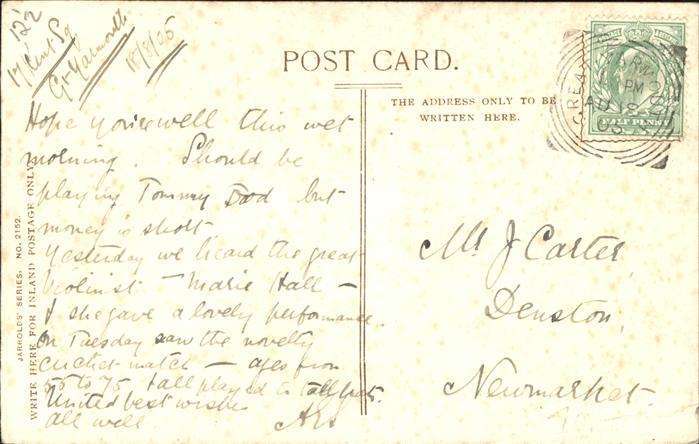 122
17 Kent Sq
Gt Yarmouth
18/8/05
POST CARD.
THE ADDRESS ONLY TO BE
WRITTEN HERE.
GREA
PM
AU 18
05
HALF PENNY
JARROLDS' SERIES. NO. 2152.
WRITE HERE FOR INLAND POSTAGE ONLY.
Hope you're well this wet
morning. Should be
playing Tommy Dod but
money is short
Yesterday we heard the great
Violinist - Marie Hall -
& she gave a lovely performance.
On Tuesday saw the novelty
cricket match - ages from
55 to 75 & all played in tall hats.
United best wishes
all well
Mr J Carter,
Denston,
Newmarket.